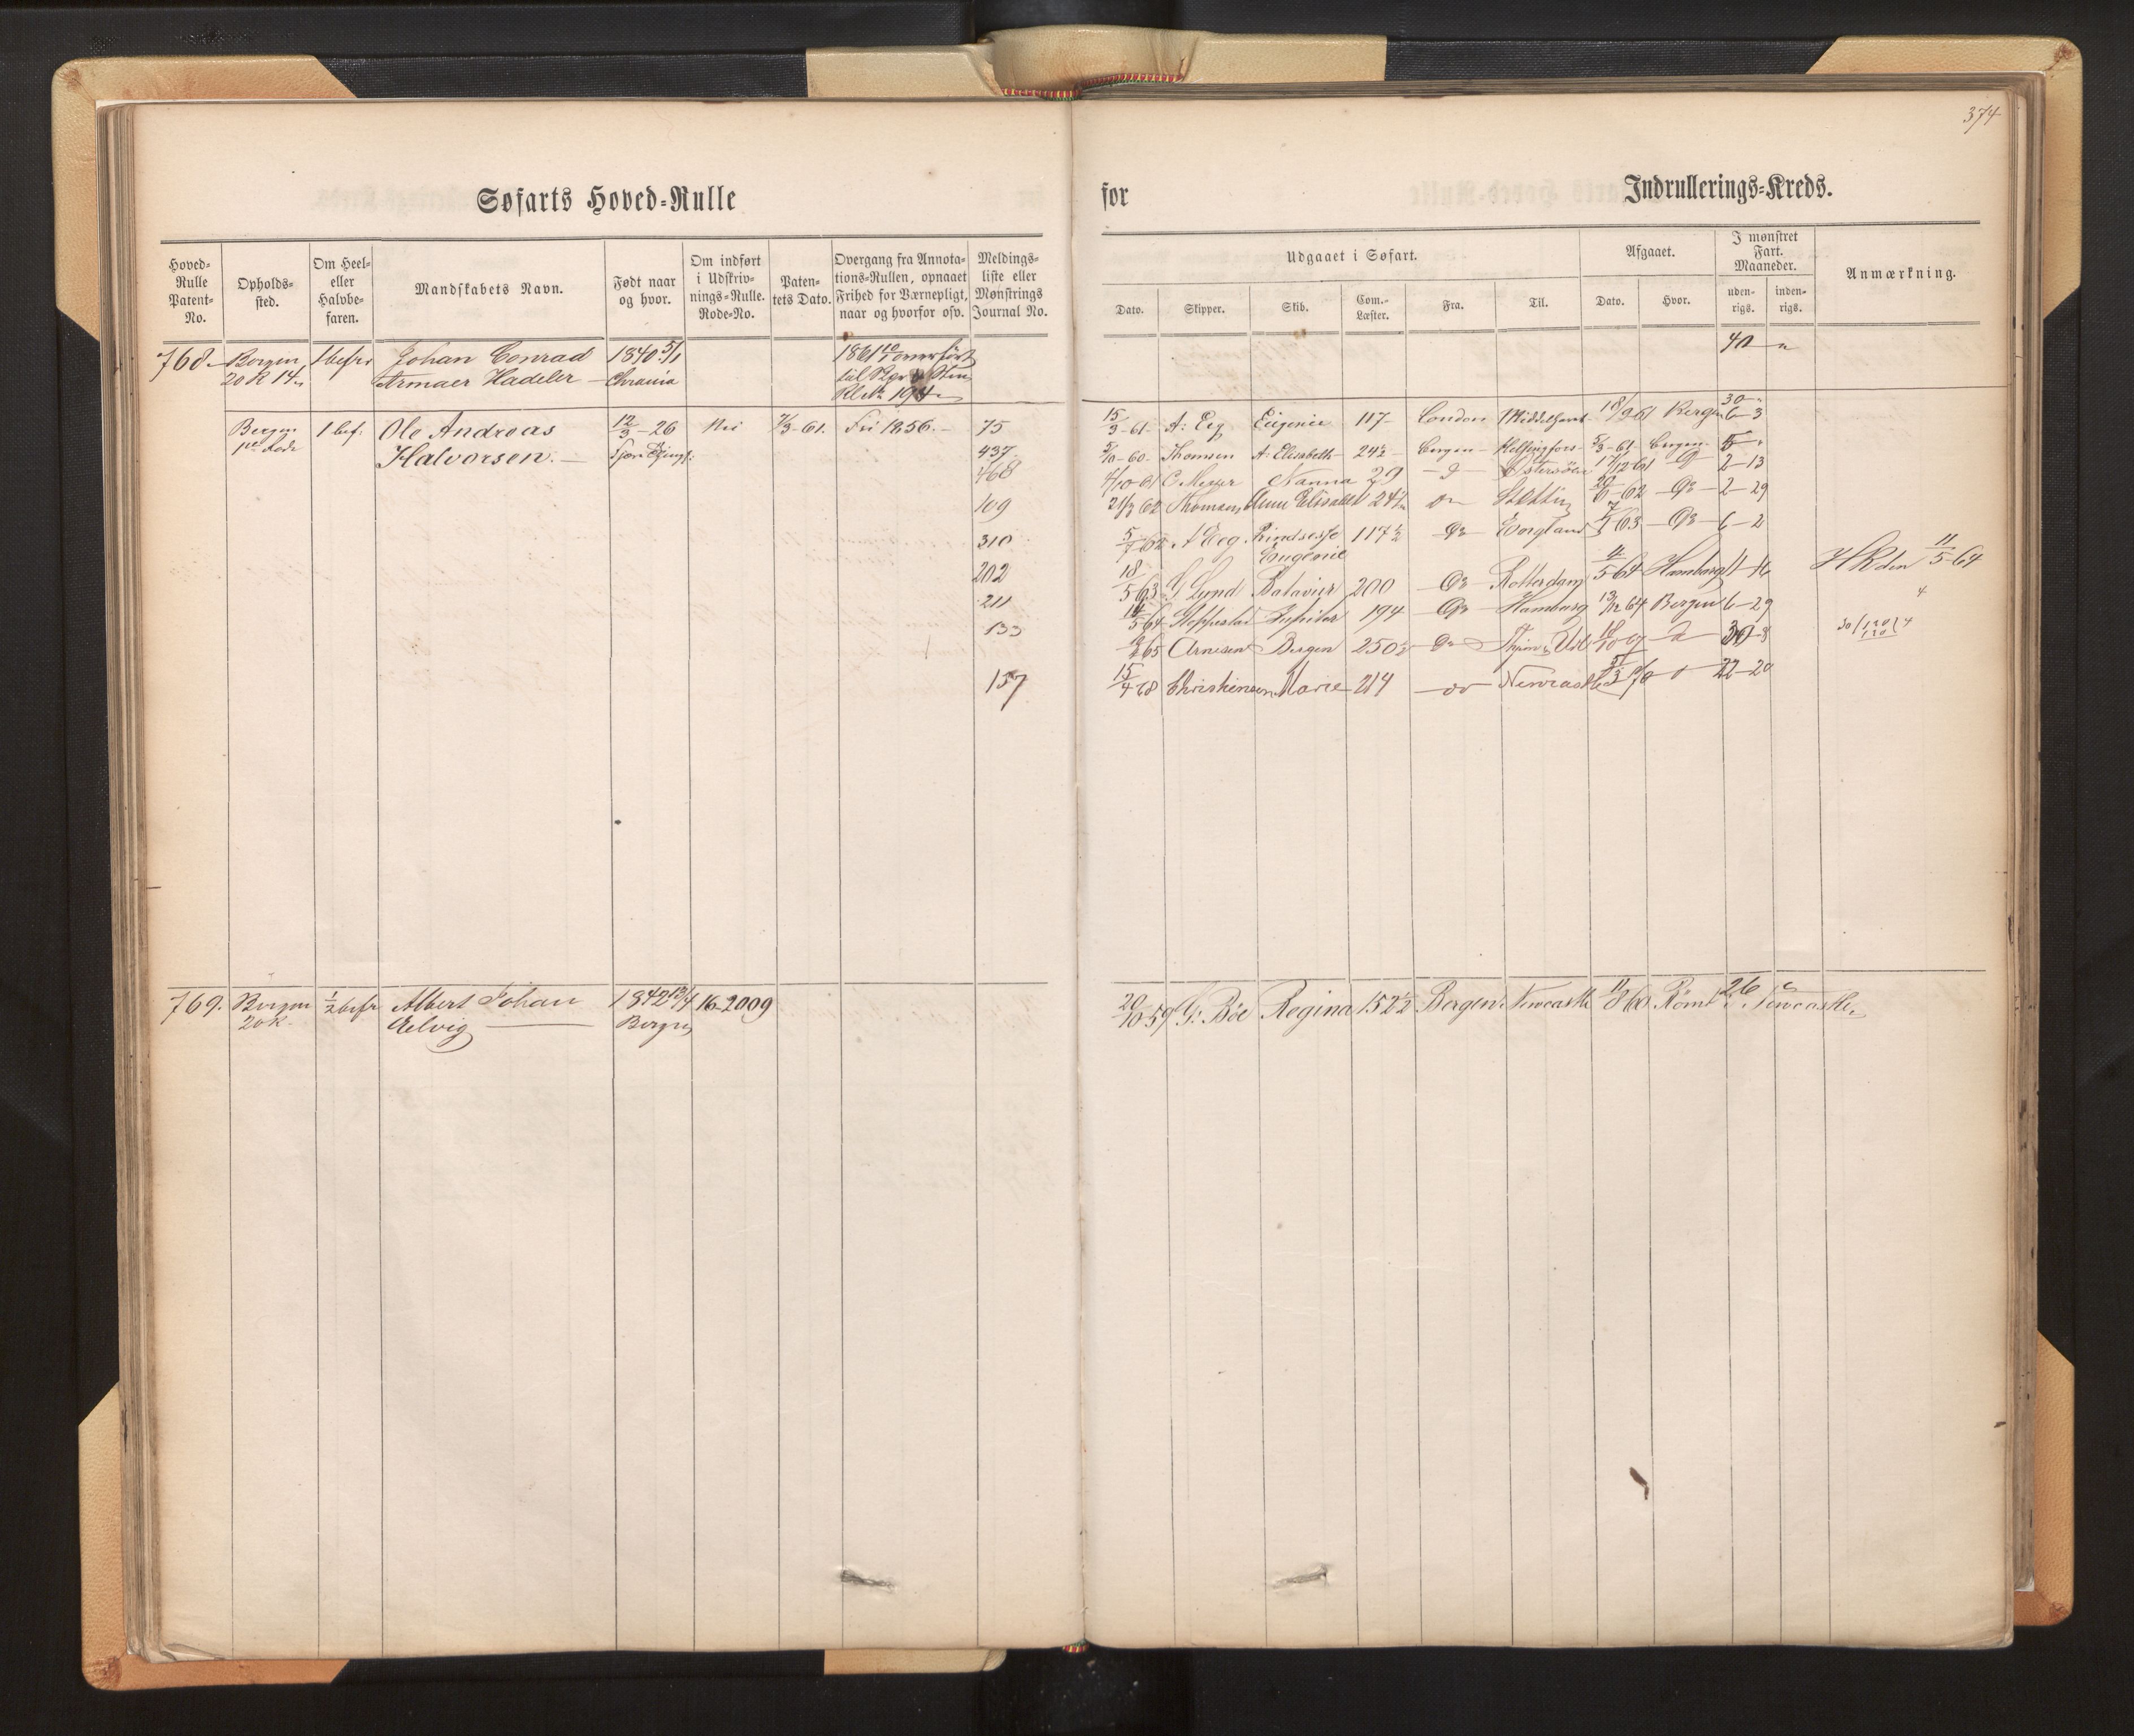 374
Søfarts Hoved-Rulle
for
Indrullerings-Kreds.
Hoved-
Rulle
Patent-
No.
Opholds-
sted.
Om Heel-
eller
Halvbe-
faren.
Mandskabets Navn.
Født naar
og hvor.
Om indført
i Udskriv-
nings-Rulle.
Rode-No.
Paten-
tets Dato.
Overgang fra Annota-
tions-Rullen, opnaaet
Frihed for Værnepligt,
naar og hvorfor osv.
Meldings-
liste eller
Mønstrings
Journal No.
Udgaaet i Søfart.
Dato.
Skipper.
Skib.
Com.-
Læster.
Fra.
Til.
Afgaaet.
Dato.
Hvor.
I mønstret
Fart.
Maaneder.
uden-
rigs.
inden-
rigs.
Anmærkning.
768 Bergen 1 befr Johan Conrad 1840 5/1 1861 overført
20 R 14 Armaer Hadeler Chrania til
40
Bergen 1 bef. Ole Andreas 12/3-26 Nei 7/3-61. Fri 1856. 75
Halvorsen.
30
15/3-61 A: Eeg Eugenie 117 London Middelhavet 18/9 61 Bergen 6-3
437 5/10-60 Thomsen A: Elisabeth 24½ Bergen Helsingfors 5/3-61 Bergen 5
468 4/10 61 C Meyer Nanna 29 Østersøen 17/12 61 2-13
109 21/3 62 Thomsen Anne Elisabet 24½ Stettin 20/6-62 2-29
310 5/7 62 A Eeg Prindsesse 117½ England 7/1 63 6-2
Eugenie
202 18/5 63 G Lund Batavier 200 Rotterdam 11/5 64 Hamburg 11-16 HR den 11/5-64
211 14/5 64 Jupiter 194 Hamburg 13/12 64 Bergen 6-29
133 65 Arnesen Bergen 250½ 30-8
157 15/4 68 Christensen Marie 214 Newcastle 22-20
769. Bergen ½ befr Albert Johan 1842 13/4 16-2009
20 R. Eelvig Bergen
20/10 59 G: Böe Regina 152½ Bergen Newcastle 11/8 60 Römt i Newcastle
26